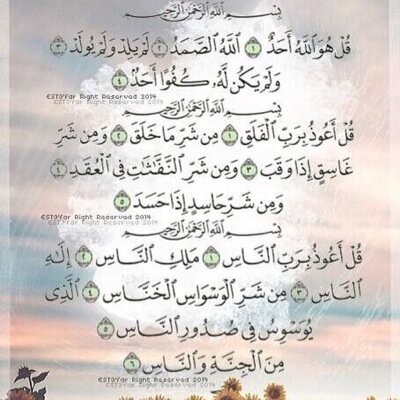 بِسْمِ اللَّهِ الرَّحْمَٰنِ الرَّحِيمِ
قُلْ هُوَ اللَّهُ أَحَدٌ ١ اللَّهُ الصَّمَدُ ٢ لَمْ يَلِدْ وَلَمْ يُولَدْ ٣
وَلَمْ يَكُن لَّهُ كُفُوًا أَحَدٌ ٤
EST3'9ar Right Reserved 2014
بِسْمِ اللَّهِ الرَّحْمَٰنِ الرَّحِيمِ
قُلْ أَعُوذُ بِرَبِّ الْفَلَقِ ١ مِن شَرِّ مَا خَلَقَ ٢ وَمِن شَرِّ
غَاسِقٍ إِذَا وَقَبَ ٣ وَمِن شَرِّ النَّفَّاثَاتِ فِي الْعُقَدِ ٤
وَمِن شَرِّ حَاسِدٍ إِذَا حَسَدَ ٥
EST3'9ar Right Reserved 2014
بِسْمِ اللَّهِ الرَّحْمَٰنِ الرَّحِيمِ
قُلْ أَعُوذُ بِرَبِّ النَّاسِ ١ مَلِكِ النَّاسِ ٢ إِلَٰهِ
النَّاسِ ٣ مِن شَرِّ الْوَسْوَاسِ الْخَنَّاسِ ٤ الَّذِي
يُوَسْوِسُ فِي صُدُورِ النَّاسِ ٥
مِنَ الْجِنَّةِ وَالنَّاسِ ٦
EST3'9ar Right Reserved 2014